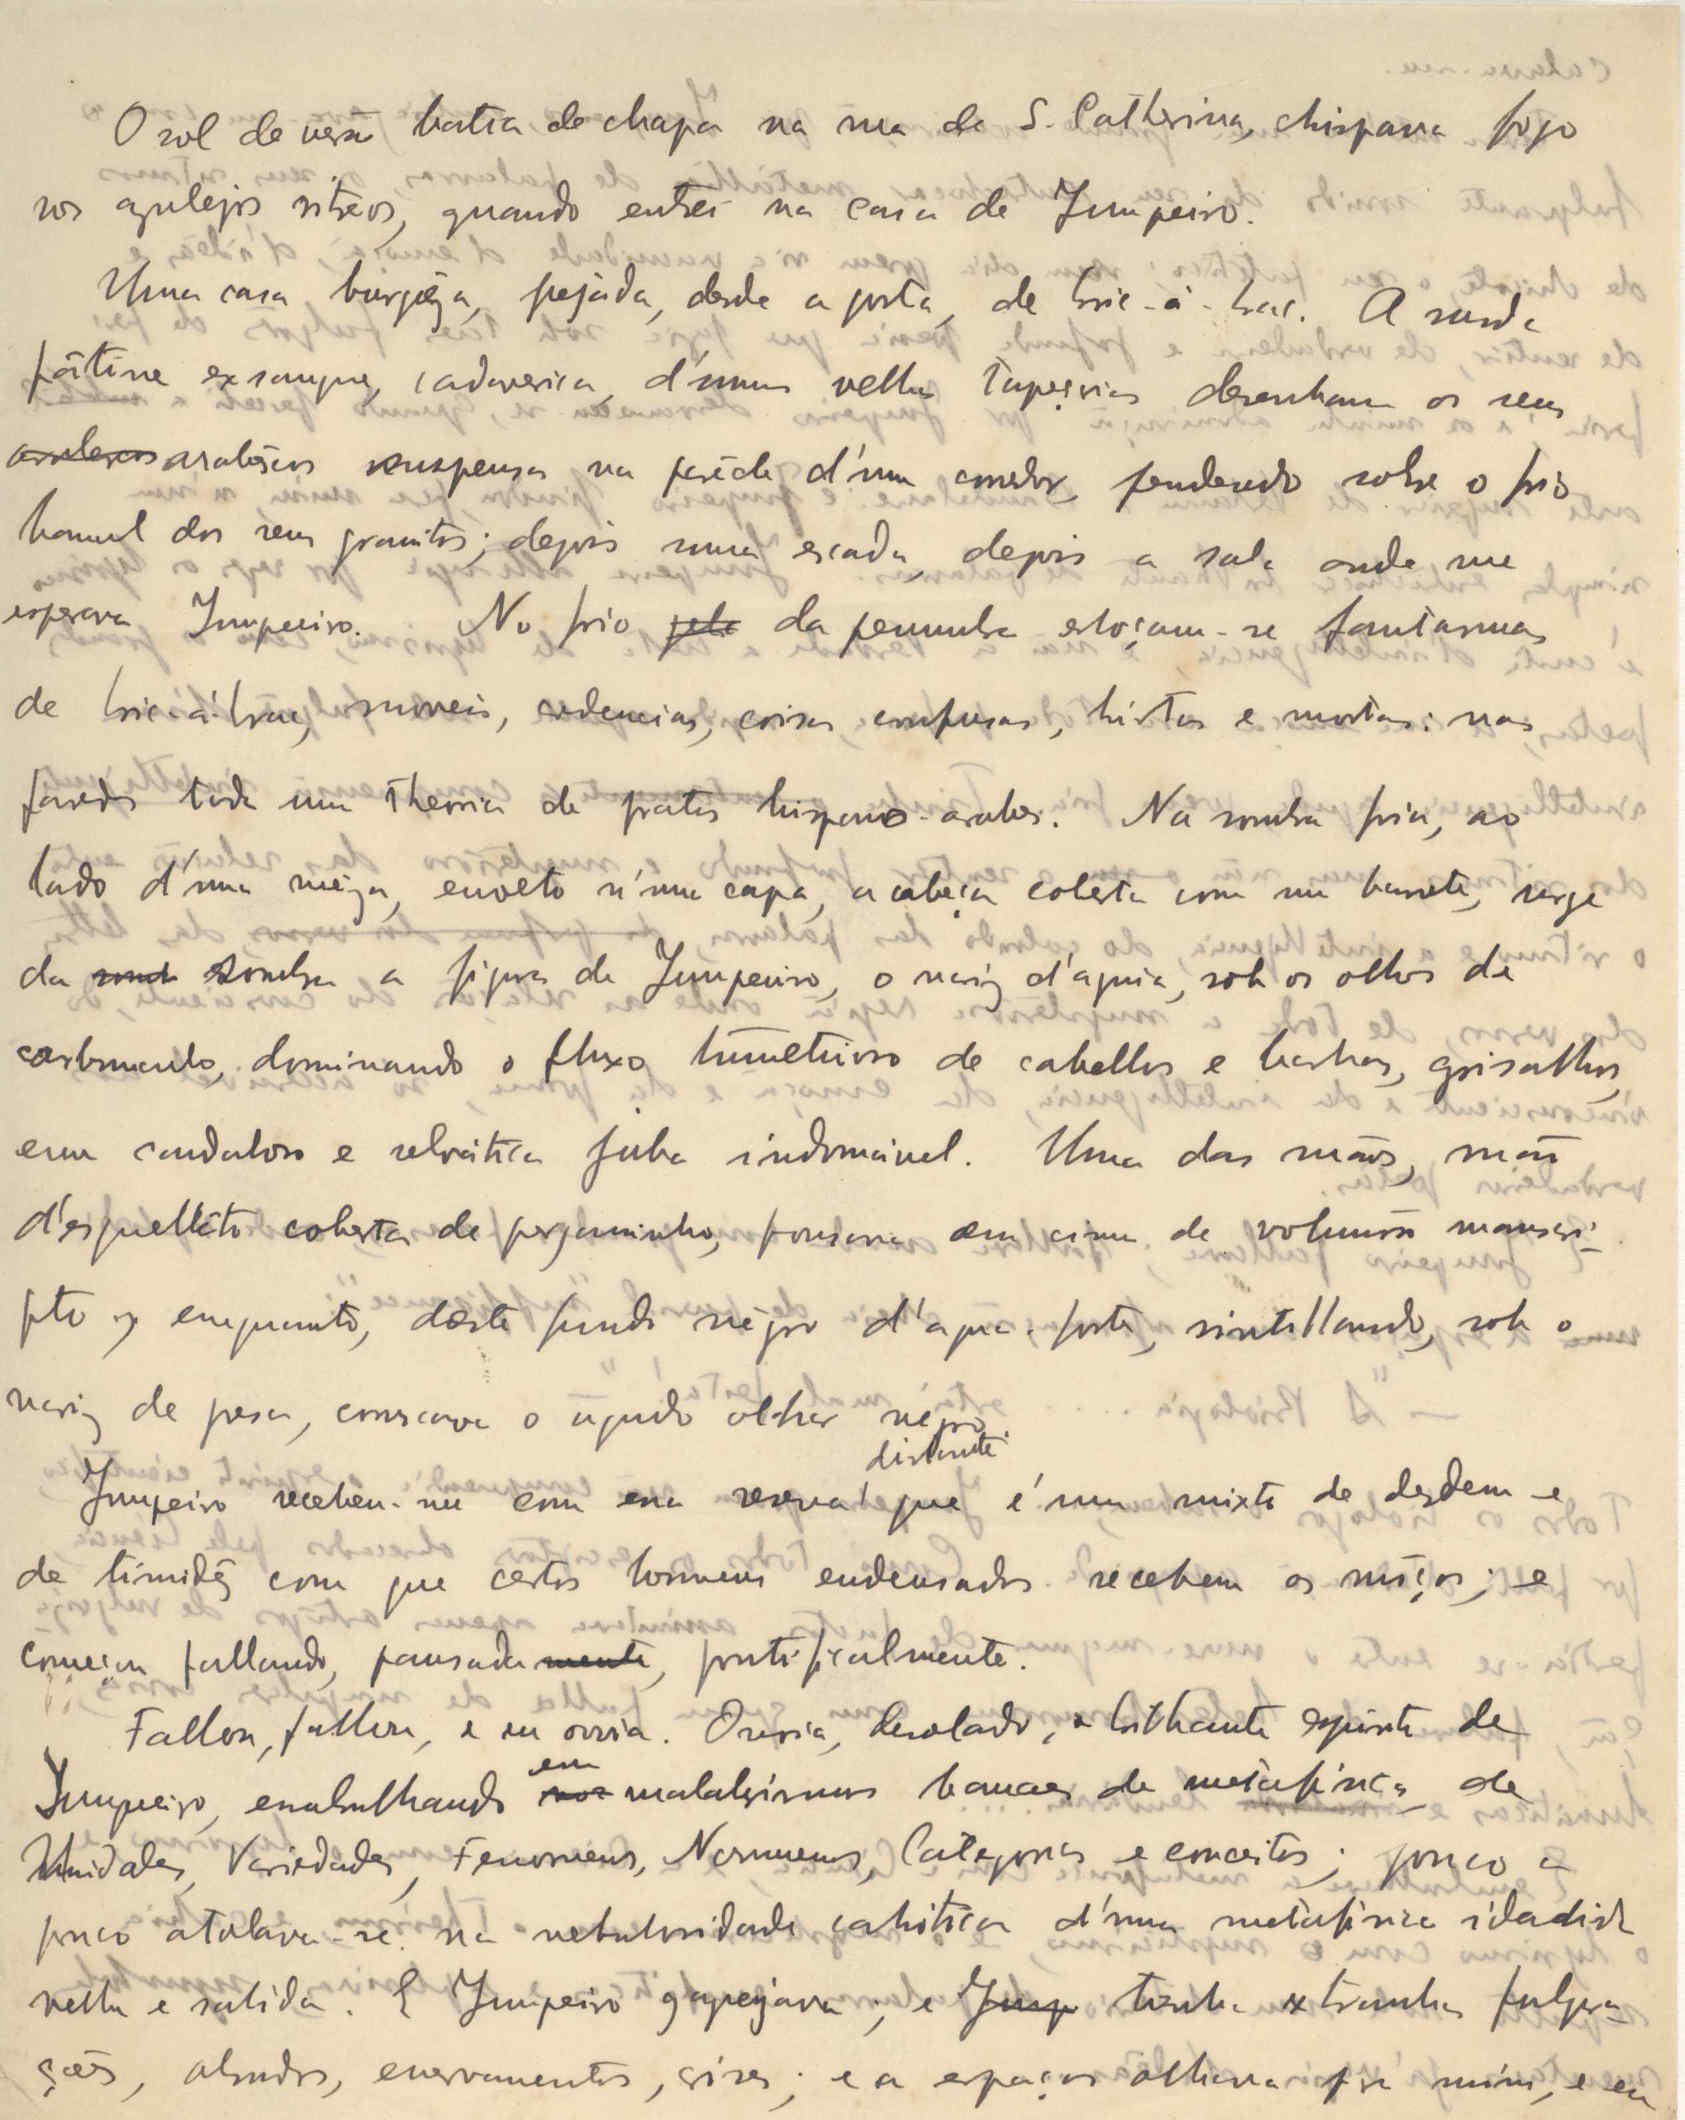 O sol de verão batia de chapa na rua de S. Catherina, chispava fogo
nos azulejos vitreos, quando entrei na casa de Junqueiro.
Uma casa burgêza, pejada, desde a porta, de bric-à-brac. A surda
pátine exsangue, cadaverica, d'umas velhas tapeçarias desenham os seus
arabescos suspensas na parêde d'um corredor, pendendo sobre o frio
banal dos seus granitos; depois uma escada, depois a sala onde me
esperava Junqueiro. No frio da penumbra esboçam-se fantasmas
de bric-á-brac, moveis, credencias, coisas confusas, hirtas e mortas: nas
paredes toda uma theoria de pratos hispano-arabes. Na sombra fria, ao
lado d'uma mêza, envolto n'uma capa, a cabeça coberta com um barrete, surge
da sombra a figura de Junqueiro, o nariz d'aguia, sob os olhos de
carbunculo, dominando o fluxo tumultuoso de cabellos e barbas, grisalhos,
em caudalosa e selvática juba indomável. Uma das mãos, mão
d'esquelléto coberta de pergaminho, pousava em cima de volumoso manuscri-
pto; enquanto, deste fundo negro d'agua-forte, sintillando, sob o
nariz de presa, coruscava o agudo olhar negro.
Junqueiro recebeu-me com essa reserva distante que é um mixto de desdem e
de timidêz com que certos homens endeusados recebem os môços; e
começou fallando, pausada, pontificalmente.
Fallou, fallou, e eu ouvia. Ouvia, desolado, o brilhante espirito de
Junqueiro, embrulhando em malabarismos banaes de metafisica, de
Unidades, Variedades, Fenomenos, Noumenos, Categorias e conceitos; pouco a
pouco atolava-se na nebulosidade cahotica d'uma metafisica
velha e sabida. E Junqueiro gaguejava; e tinha extranhas fulgura-
ções, absurdos, enervamentos, crises; e a espaços olhava pra mim, e eu